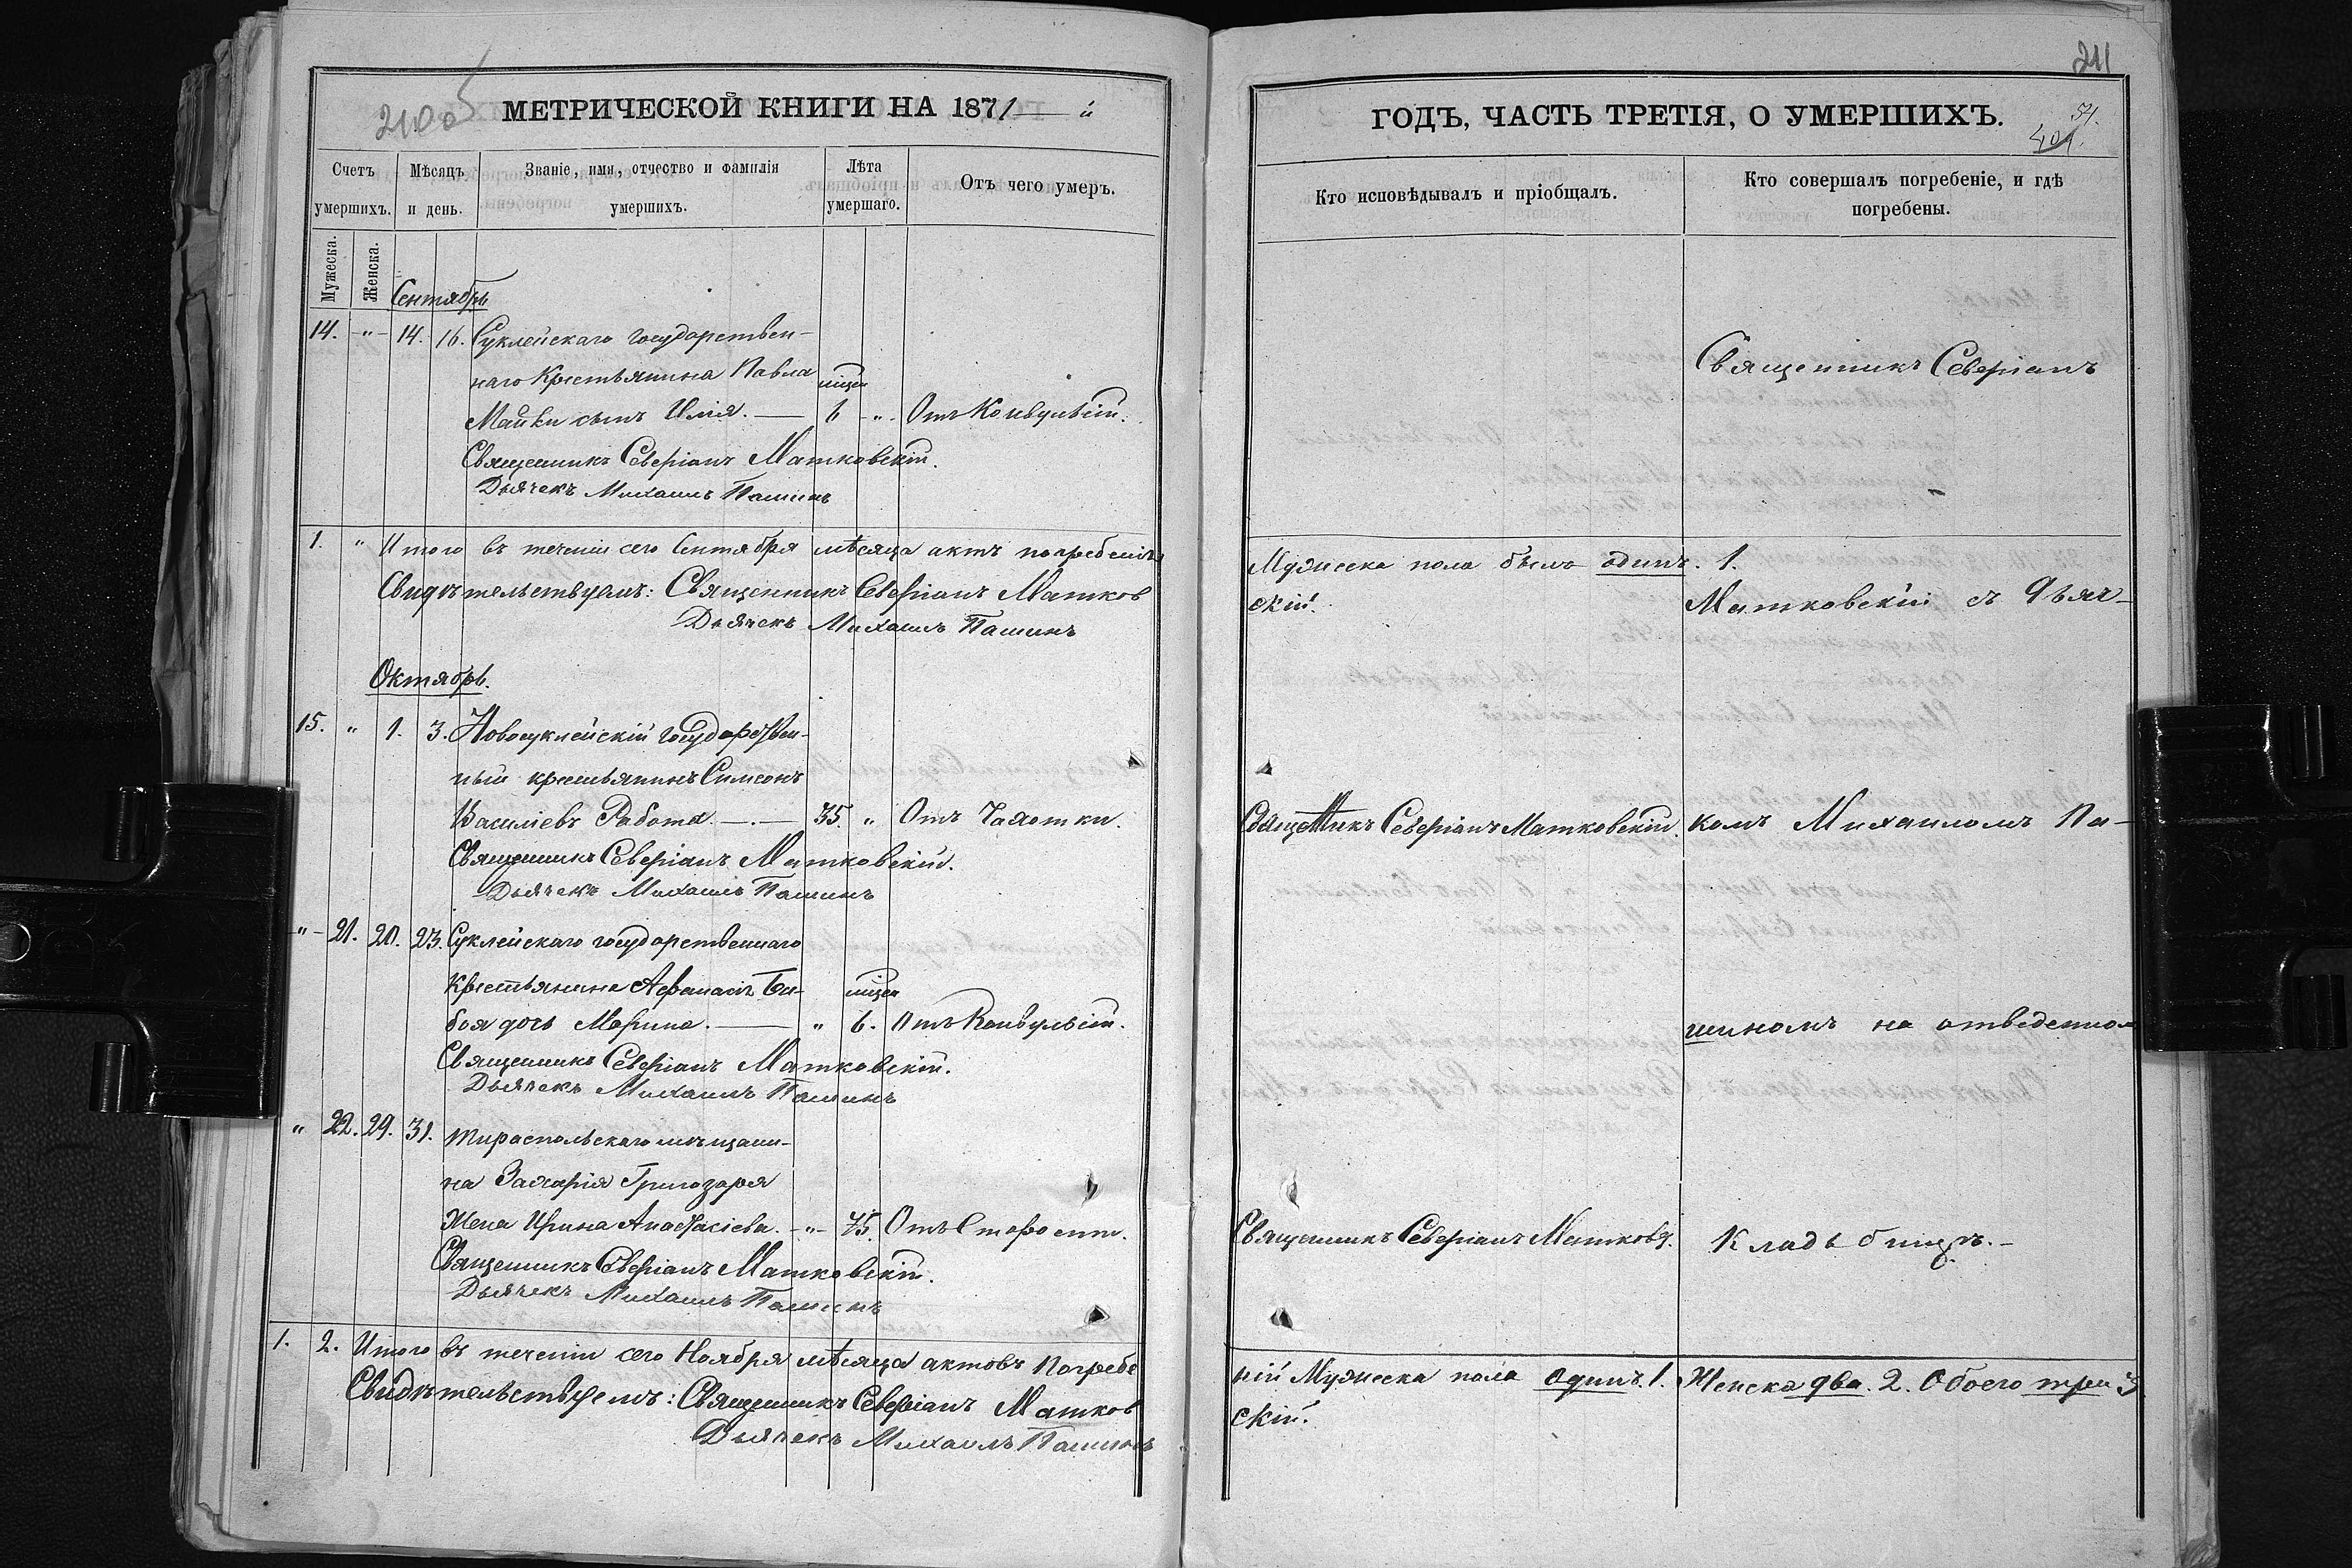 210об
МЕТРИЧЕСКОЙ КНИГИ НА 1871 й
Счетъ умершихъ.
Мѣсяцъ и день.
Званіе, имя, отчество и фамилія умершихъ.
Лѣта умершаго.
Отъ чего умеръ.
Мужеска.
Женска.
Сентябрь
14. " 14. 16. Суклейскаго государствен-
наго крестьянина Павла
Майки сынъ Илія. 6 " Отъ Конвульсій.
Священникъ Северіанъ Матковскій.
Дьячекъ Михаилъ Пашинъ
1. " Итого въ теченіи сего Сентября мѣсяца актъ погребенія
Свидѣтельствуемъ: Священникъ Северіанъ Матков
Дьячекъ Михаилъ Пашинъ
Октябрь.
15. " 1. 3. Новосуклейскій государствен-
ный крестьянинъ Симеонъ
Василіевъ Работа. 35. " Отъ Чахотки.
Священникъ Северіанъ Матковскій.
Дьячекъ Михаилъ Пашинъ
" 21. 20. 23. Суклейскаго государственнаго
крестьянина Аѳанасія Би-
боя дочь Марина. " 6. Отъ Конвульсій.
Священникъ Северіанъ Матковскій.
Дьячекъ Михаилъ Пашинъ
" 22. 29. 31. Тираспольскаго мѣщани-
на Захарія Григозаря
Жена Ирина Анастасіева. " 75. Отъ Старости.
Священникъ Северіанъ Матковскій.
Дьячекъ Михаилъ Пашинъ
1. 2. Итого въ теченіи сего Ноября мѣсяца актовъ погребе
Свидѣтельствуемъ: Священникъ Северіанъ Матков
Дьячекъ Михаилъ Пашинъ
211
ГОДЪ, ЧАСТЬ ТРЕТІЯ, О УМЕРШИХЪ.
Кто исповѣдывалъ и пріобщалъ.
Кто совершалъ погребеніе, и гдѣ погребены.
Священникъ Северіанъ
Мужеска пола былъ одинъ. 1.
скій.
Матковскій съ Дьяч-
Священникъ Северіанъ Матковскій. комъ Михаиломъ Па-
шиномъ на отведенном
Священникъ Северіанъ Матковск. Кладбищѣ.
ній Мужеска пола одинъ. 1. Женска два. 2. Обоего три 3
скій.